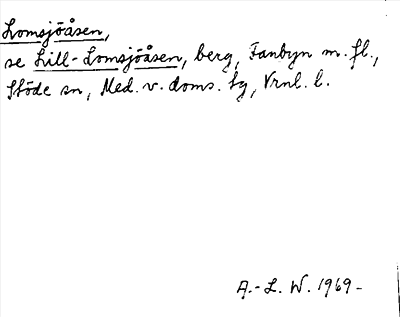 Lomsjöåsen,
se Lill-Lomsjöåsen, berg, Fanbyn m. fl.,
Stöde sn, Med. v. doms. tg, Vrnl. l.
A.-L. W. 1969-